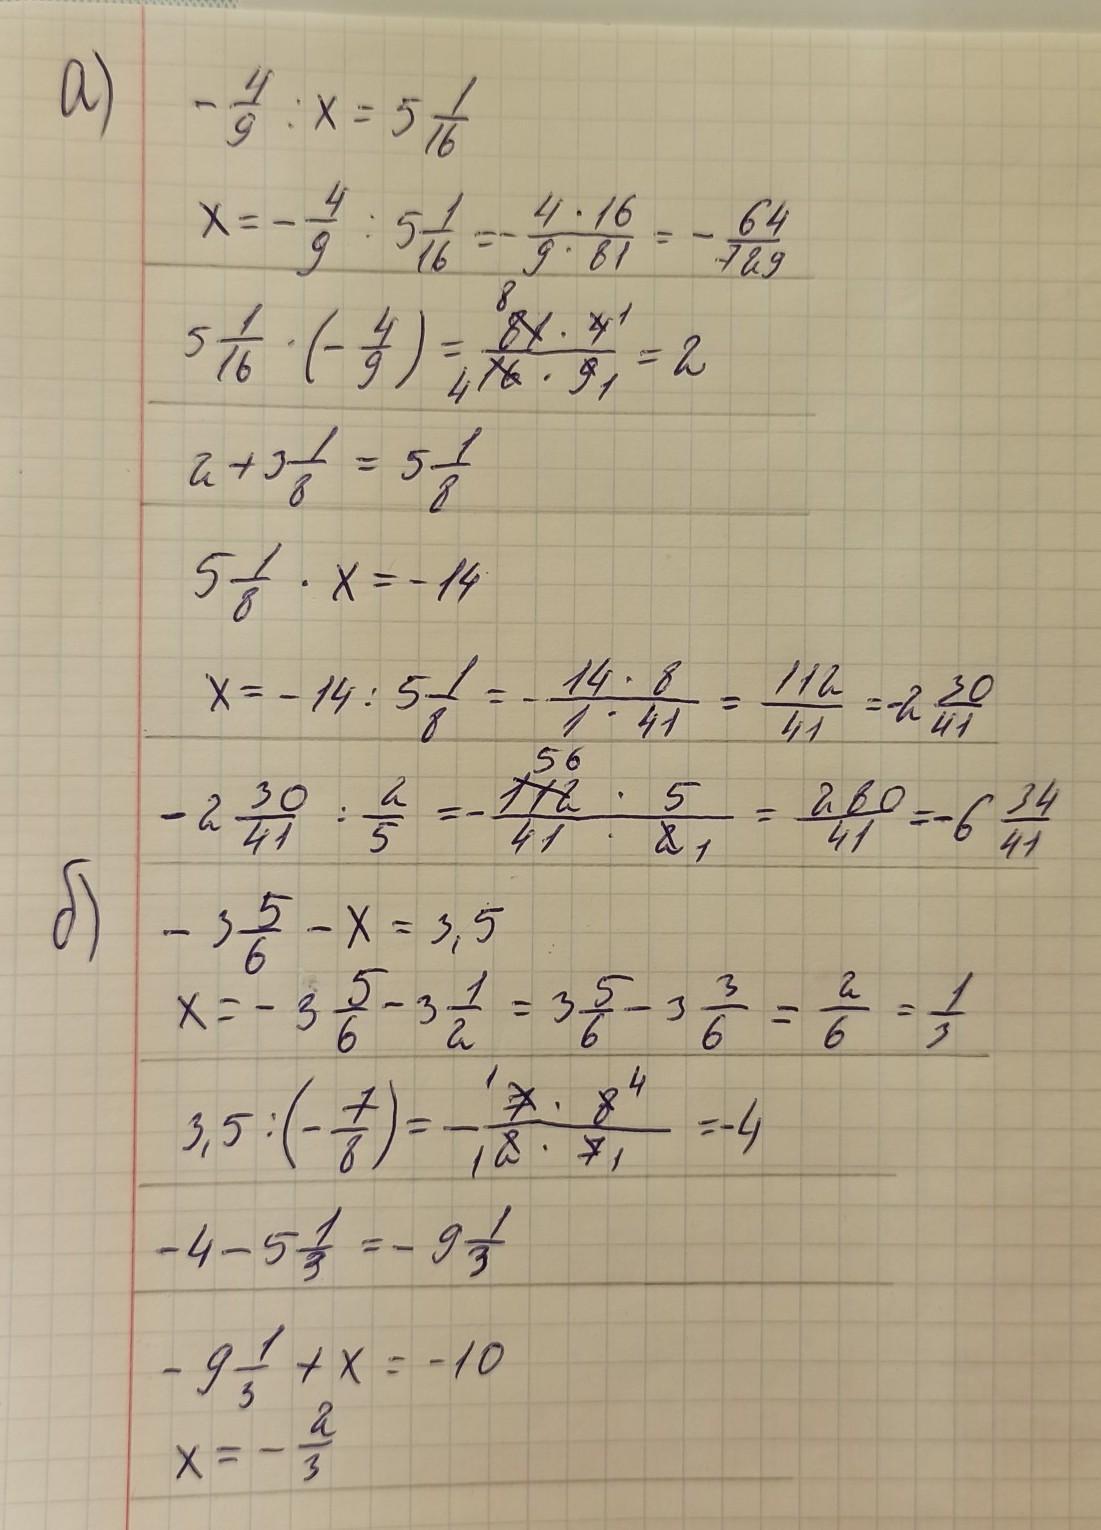 а) -4/9 : x = 5 1/16
x = -4/9 : 5 1/16 = - (4 · 16)/(9 · 81) = - 64/729
5 1/16 · (-4/9) = (81 · 4)/(16 · 9) = 2
8 1 4 1
2 + 3 1/8 = 5 1/8
5 1/8 · x = -14
x = -14 : 5 1/8 = - (14 · 8)/(1 · 41) = 112/41 = -2 30/41
-2 30/41 : 2/5 = - (112 · 5)/(41 · 2) = 280/41 = -6 34/41
56 1
б) - 3 5/6 - x = 3,5
x = - 3 5/6 - 3 1/2 = 3 5/6 - 3 3/6 = 2/6 = 1/3
3,5 : (-7/8) = - (7 · 8)/(2 · 7) = -4
1 4 1 1
-4 - 5 1/3 = - 9 1/3
- 9 1/3 + x = -10
x = - 2/3